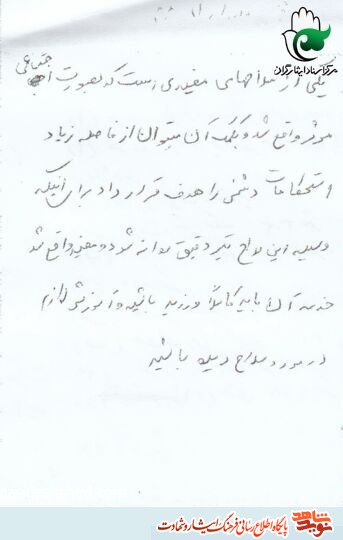 مرکز اسناد ایثارگران
یکی از سلاحهای مفیدی است که بصورت اجتماعی
موثر واقع شد و بکمک آن میتوان از فاصله زیاد
استحکامات دشمن را هدف قرار داد برای اینکه
وسیله این سلاح تیر دقیق روانه شد و مفید واقع شد
خدمه آن باید کاملاً ورزیده باشند و آموزش لازم
در مورد سلاح دیده باشند
نوید شاهد
پایگاه اطلاع رسانی فرهنگ ایثار و شهادت